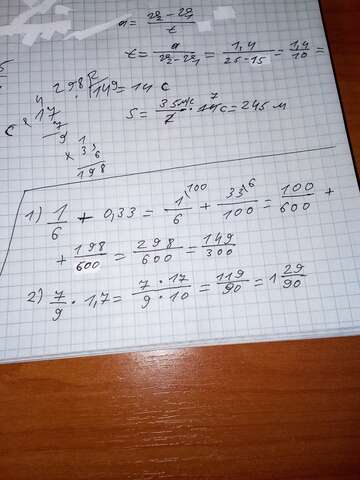 a = v₂ - v₁ / t
t = a / v₂ - v₁ = 1,4 / 25 - 15 = 1,4 / 10 =
298 2
149 = 14 c
4
17
7
S = 35 м/с / 2 · 14 c = 245 м
7
9
1
3
33
× 6
198
1) 1/6 + 0,33 = 1\100 / 6 + 33\6 / 100 = 100/600 +
+ 198/600 = 298/600 = 149/300
2) 7/9 · 1,7 = 7 · 17 / 9 · 10 = 119/90 = 1 29/90